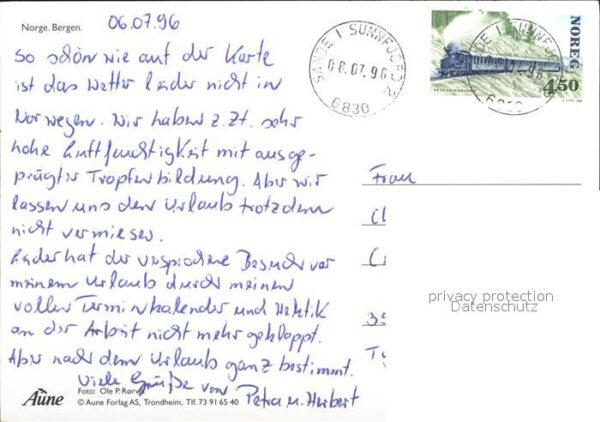 Norge. Bergen.
06.07.96
So schön wie auf der Karte
ist das Wetter leider nicht in
Norwegen. Wir haben z.Zt. sehr
hohe Luftfeuchtigkeit mit ausge-
prägter Tropfenbildung. Aber wir
lassen uns den Urlaub trotzdem
nicht vermiesen.
Leider hat der versprochene Besuch vor
meinem Urlaub durch meinen
vollen Terminkalender und Hektik
an der Arbeit nicht mehr geklappt.
Aber nach dem Urlaub ganz bestimmt.
Viele Grüße von Petra u. Herbert
Aune
Foto: Ole P. Rørvik
© Aune Forlag AS, Trondheim, Tlf. 73 91 65 40
SANDE I SUNNFJORD
08.07.96
6830
NOREG
4.50
Frau
privacy protection
Datenschutz